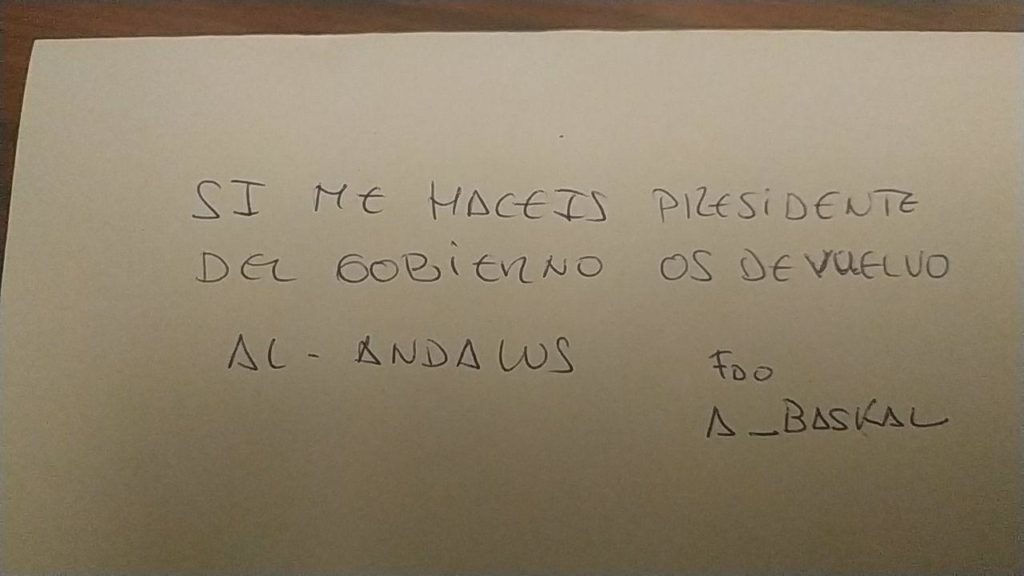 SI ME HACEIS PRESIDENTE
DEL GOBIERNO OS DEVUELVO
AL-ANDALUS
FDO
A_BASKAL